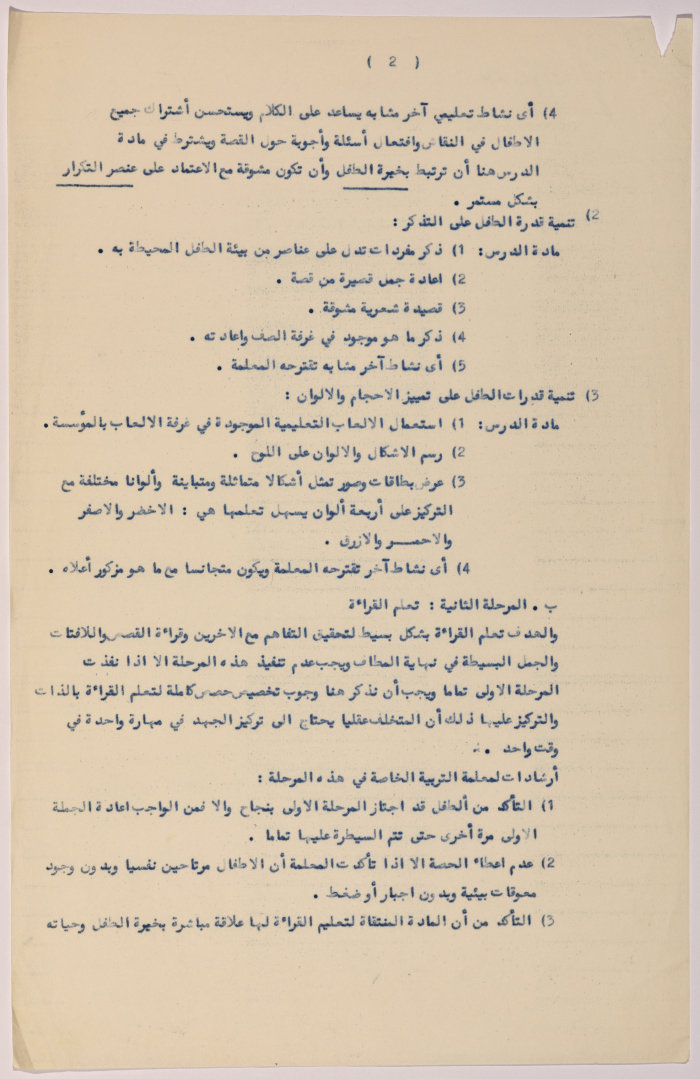 ( 2 )
4) أى نشاط تعليمي آخر مشابه يساعد على الكلام ويستحسن أشتراك جميع
الاطفال في النقاش وافتعال أسئلة وأجوبة حول القصة ويشترط في مادة
الدرس هنا أن ترتبط بخبرة الطفل وأن تكون مشوقة مع الاعتماد على عنصر التكرار
بشكل مستمر .
2) تنمية قدرة الطفل على التذكر :
مادة الدرس: 1) ذكر مفردات تدل على عناصر من بيئة الطفل المحيطة به .
2) اعادة جمل قصيرة من قصة .
3) قصيدة شعرية مشوقة .
4) ذكر ما هو موجود في غرفة الصف واعادته .
5) أى نشاط آخر مشابه تقترحه المعلمة .
3) تنمية قدرات الطفل على تمييز الاحجام والالوان :
مادة الدرس: 1) استعمال الالعاب التعليمية الموجودة في غرفة الالعاب بالمؤسسة .
2) رسم الاشكال والالوان على اللوح .
3) عرض بطاقات وصور تمثل أشكالا متماثلة ومتباينة وألوانا مختلفة مع
التركيز على أربعة ألوان يسهل تعلمها هي : الاخضر والاصفر
والاحمـــر والازرق .
4) أى نشاط آخر تقترحه المعلمة ويكون متجانسا مع ما هو مزكور أعلاه .
ب . المرحلة الثانية : تعلم القراءة
والهدف تعلم القراءة بشكل بسيط لتحقيق التفاهم مع الاخرين وقراءة القصص واللافتات
والجمل البسيطة في نهاية المطاف ويجب عدم تنفيذ هذه المرحلة الا اذا نفذت
المرحلة الاولى تماما ويجب أن نذكر هنا وجوب تخصيص حصص كاملة لتعلم القراءة بالذات
والتركيز عليها ذلك أن المتخلف عقليا يحتاج الى تركيز الجهد في مهارة واحدة في
وقت واحد .
أرشادات لمعلمة التربية الخاصة في هذه المرحلة :
1) التأكد من ألطفل قد اجتاز المرحلة الاولى بنجاح والا فمن الواجب اعادة الخطة
الاولى مرة أخرى حتى تتم السيطرة عليها تماما .
2) عدم اعطاء الحصة الا اذا تأكدت المعلمة أن الاطفال مرتاحين نفسيا وبدون وجود
معوقات بيئية وبدون اجبار أو ضغط .
3) التأكد من أن المادة المنتقاة لتعليم القراءة لها علاقة مباشرة بخبرة الطفل وحياته